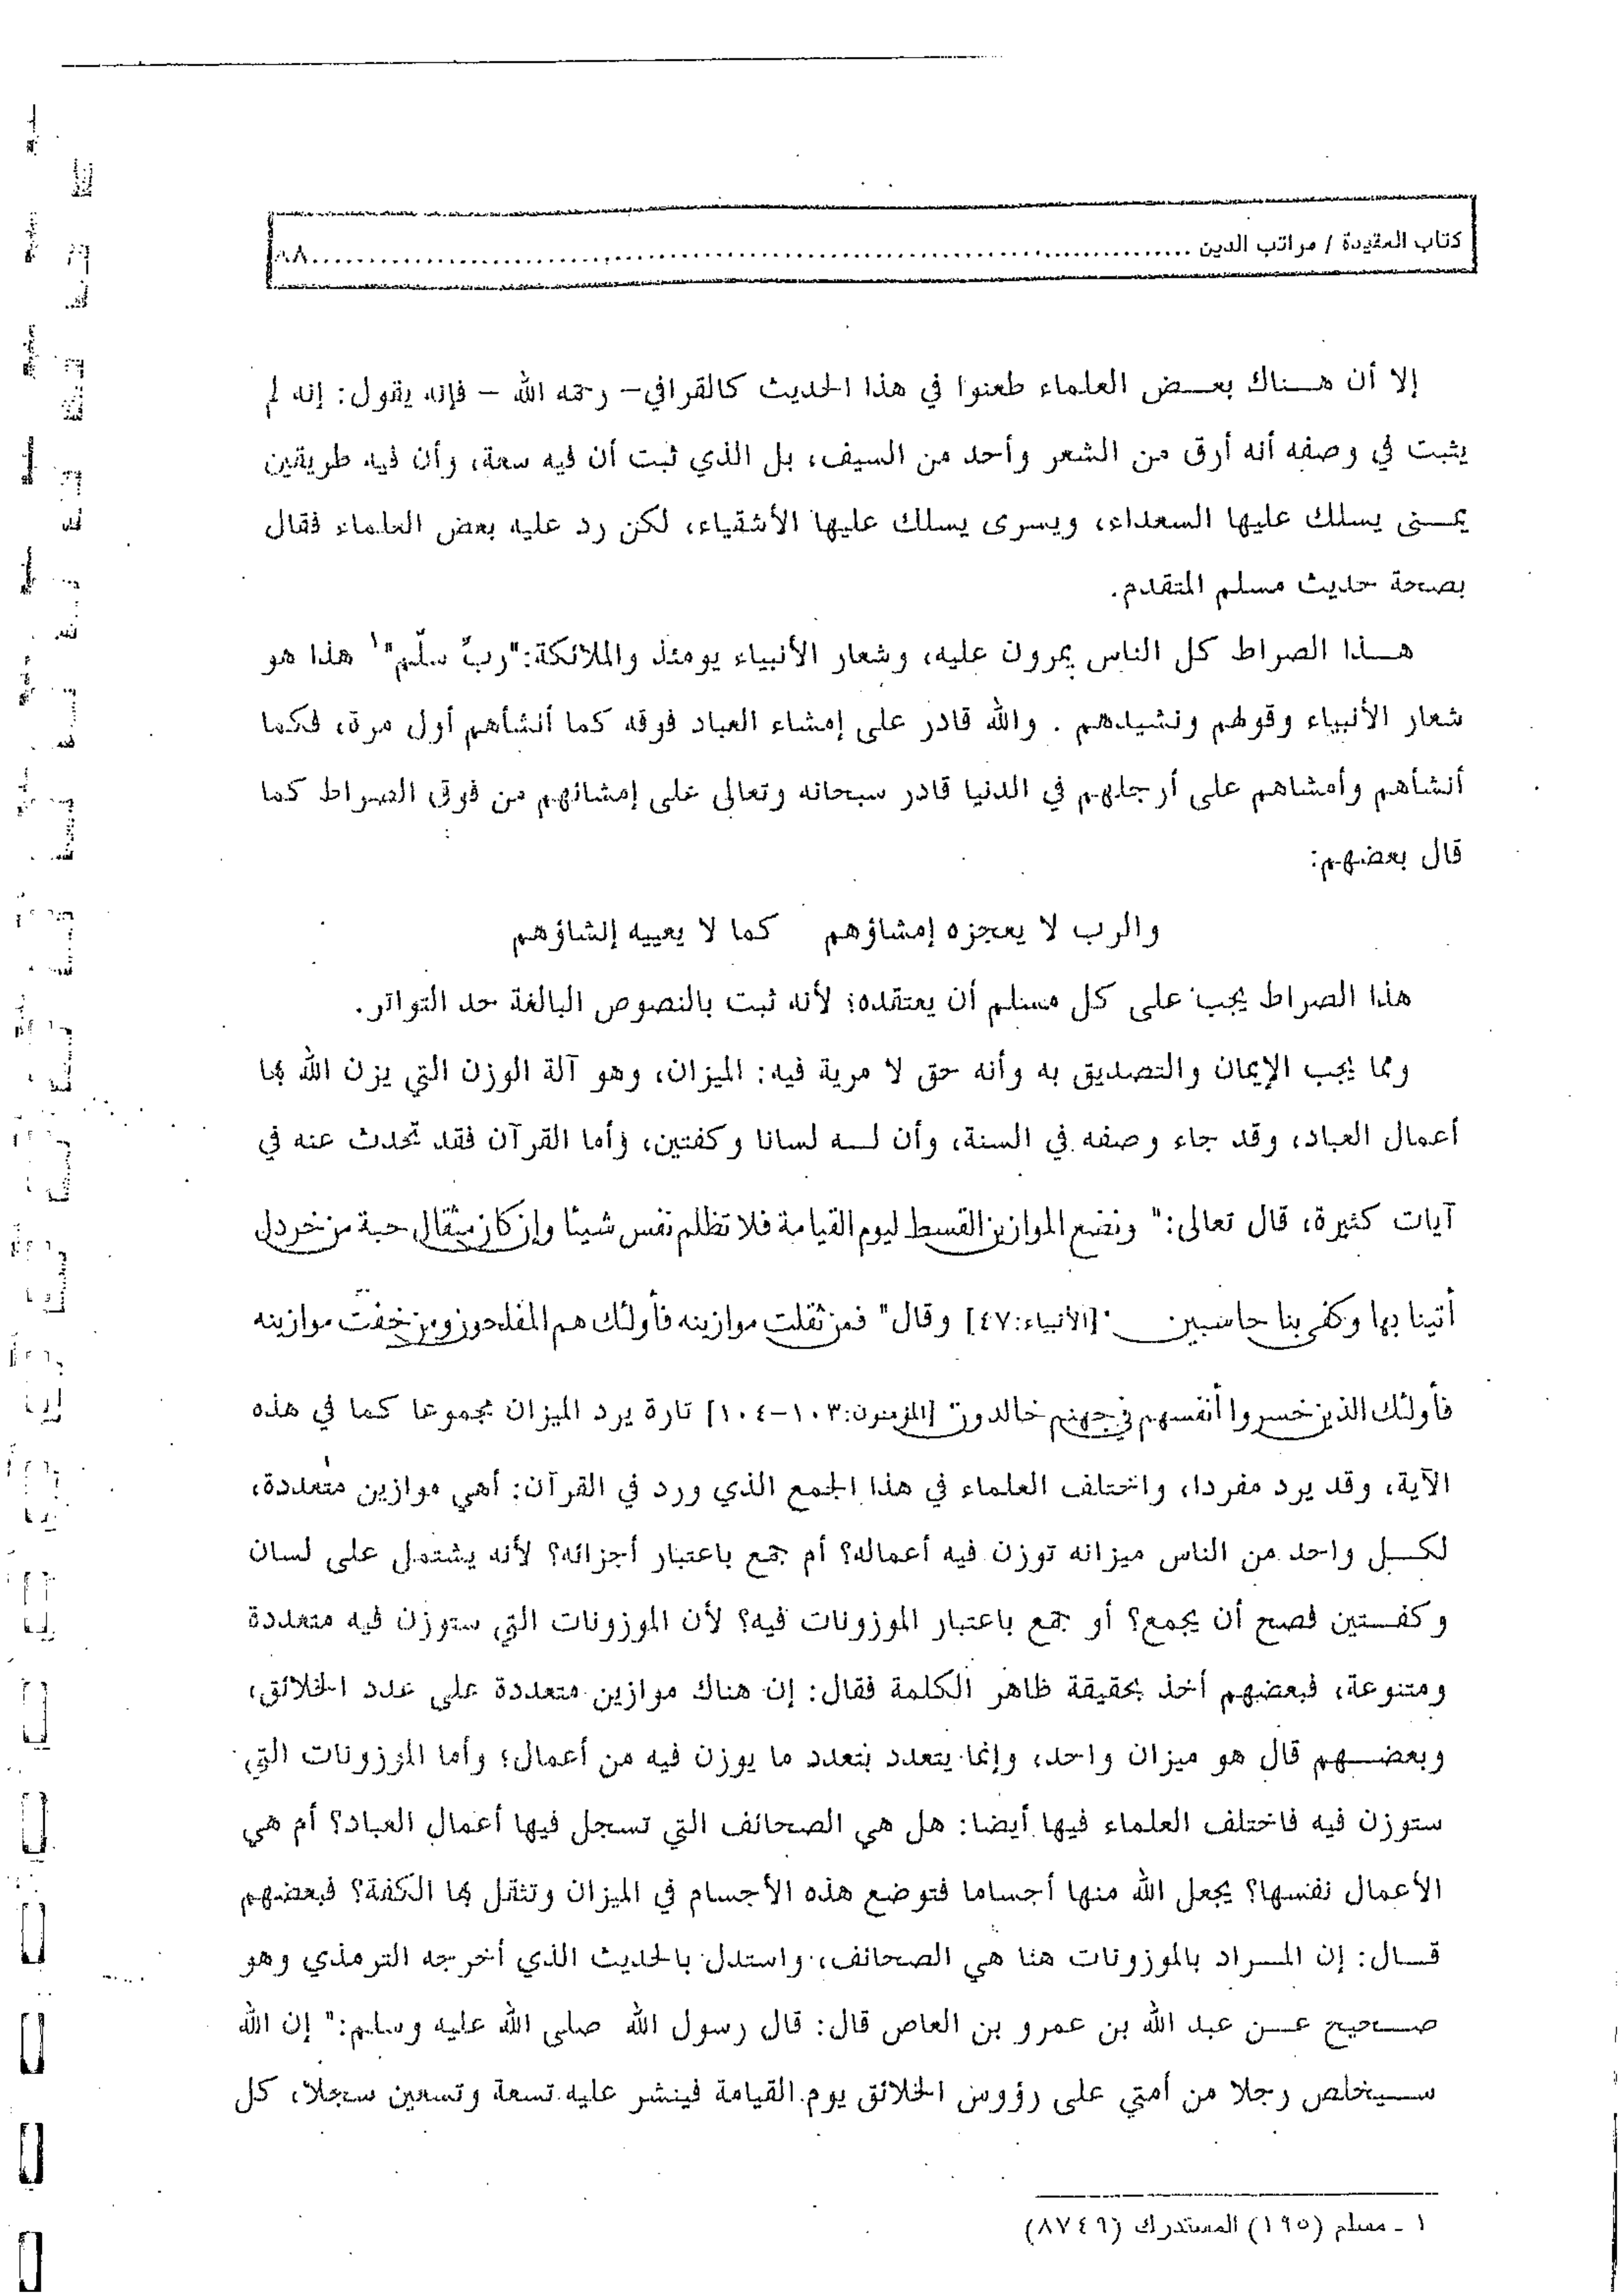 كتاب العقيدة / مراتب الدين ........................................................................
إلا أن هـناك بعـض العلماء طعنوا في هذا الحديث كالقرافي– رحمه الله – فإنه يقول: إنه لم
يثبت في وصفه أنه أرق من الشعر وأحد من السيف، بل الذي ثبت أن فيه سعة، وأن فيه طريقين
يمـنى يسلك عليها السعداء، ويسرى يسلك عليها الأشقياء، لكن رد عليه بعض العلماء فقال
بصحة حديث مسلم المتقدم.
هـذا الصراط كل الناس يمرون عليه، وشعار الأنبياء يومئذ والملائكة:"ربِّ سلّم"١ هذا هو
شعار الأنبياء وقولهم ونشيدهم . والله قادر على إمشاء العباد فوقه كما أنشأهم أول مرة، فكما
أنشأهم وأمشاهم على أرجلهم في الدنيا قادر سبحانه وتعالى على إمشائهم من فوق الصراط كما
قال بعضهم:
والرب لا يعجزه إمشاؤهم كما لا يعييه إنشاؤهم
هذا الصراط يجب على كل مسلم أن يعتقده؛ لأنه ثبت بالنصوص البالغة حد التواتر.
ومما يجب الإيمان والتصديق به وأنه حق لا مرية فيه: الميزان، وهو آلة الوزن التي يزن الله بها
أعمال العباد، وقد جاء وصفه في السنة، وأن لـه لسانا وكفتين، وأما القرآن فقد تحدث عنه في
آيات كثيرة، قال تعالى:" ونضع الموازين القسط ليوم القيامة فلا تظلم نفس شيئا وإن كان مثقال حبة من خردل
أتينا بها وكفى بنا حاسبين "[الأنبياء:٤٧] وقال" فمن ثقلت موازينه فأولئك هم المفلحون ومن خفت موازينه
فأولئك الذين خسروا أنفسهم في جهنم خالدون" [المؤمنون:١٠٣–١٠٤] تارة يرد الميزان مجموعا كما في هذه
الآية، وقد يرد مفردا، واختلف العلماء في هذا الجمع الذي ورد في القرآن: أهي موازين متعددة،
لكـل واحد من الناس ميزانه توزن فيه أعماله؟ أم جمع باعتبار أجزائه؟ لأنه يشتمل على لسان
وكفـتين فصح أن يجمع؟ أو جمع باعتبار الموزونات فيه؟ لأن الموزونات التي ستوزن فيه متعددة
ومتنوعة، فبعضهم أخذ بحقيقة ظاهر الكلمة فقال: إن هناك موازين متعددة على عدد الخلائق،
وبعضـهم قال هو ميزان واحد، وإنما يتعدد بتعدد ما يوزن فيه من أعمال؛ وأما الموزونات التي
ستوزن فيه فاختلف العلماء فيها أيضا: هل هي الصحائف التي تسجل فيها أعمال العباد؟ أم هي
الأعمال نفسها؟ يجعل الله منها أجساما فتوضع هذه الأجسام في الميزان وتثقل بها الكفة؟ فبعضهم
قـال: إن المـراد بالموزونات هنا هي الصحائف، واستدل بالحديث الذي أخرجه الترمذي وهو
صـحيح عـن عبد الله بن عمرو بن العاص قال: قال رسول الله صلى الله عليه وسلم:" إن الله
سـيخلص رجلا من أمتي على رؤوس الخلائق يوم القيامة فينشر عليه تسعة وتسعين سجلا، كل
١ ـ مسلم (١٩٥) المستدرك (٨٧٤٩)